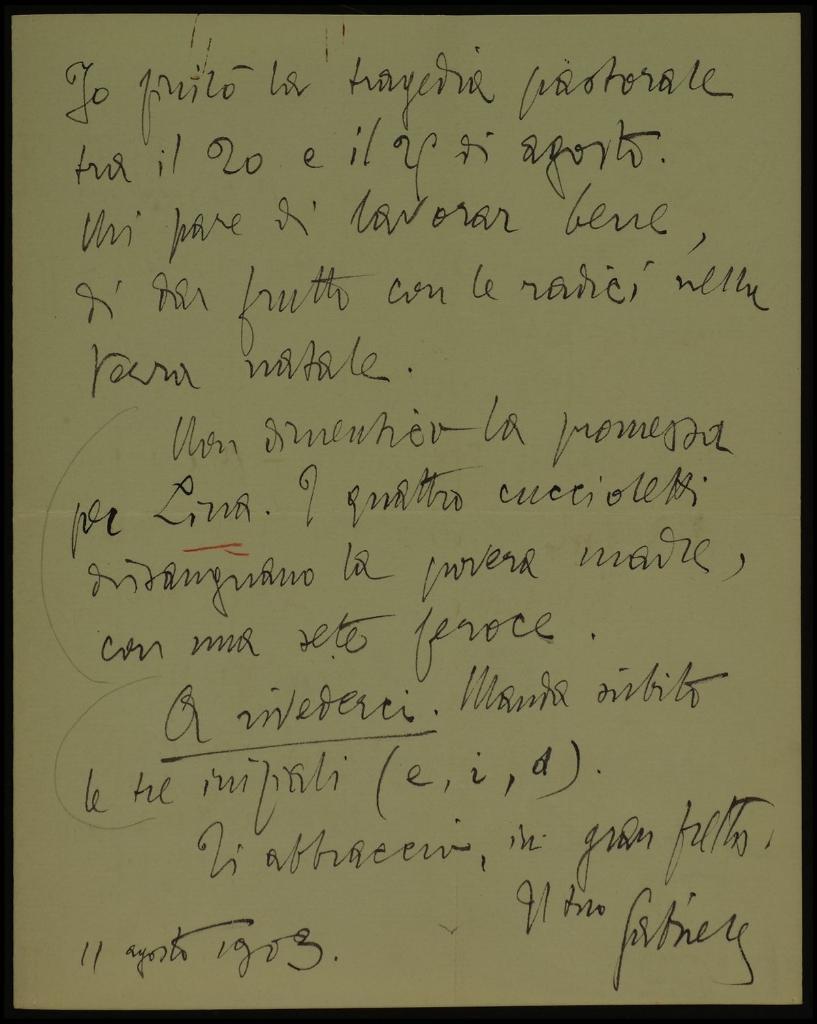 Io finirò la tragedia pastorale
tra il 20 e il 25 di agosto.
Mi pare di lavorar bene,
di dar frutto con le radici nella
terra natale.
Non dimentico la promessa
per Lina. I quattro cuccioletti
dissanguano la povera madre,
con una sete feroce.
A rivederci. Manda subito
le tre iniziali (e, i, a).
Ti abbraccio, in gran fretta.
Il tuo
Gabriele
11 agosto 1903.